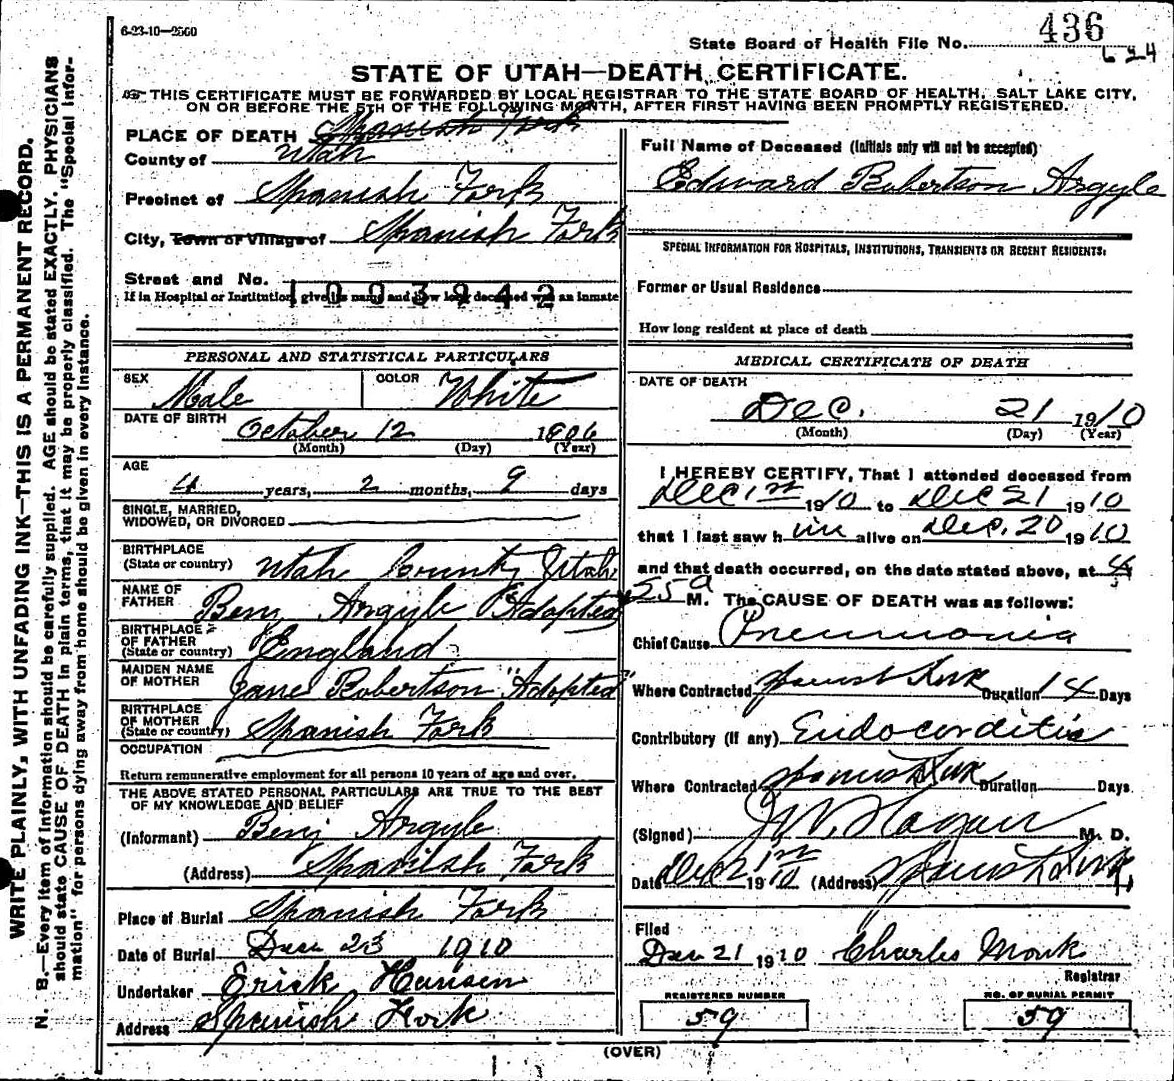 6-23-10—2500
State Board of Health File No. 436
624
STATE OF UTAH—DEATH CERTIFICATE.
THIS CERTIFICATE MUST BE FORWARDED BY LOCAL REGISTRAR TO THE STATE BOARD OF HEALTH, SALT LAKE CITY,
ON OR BEFORE THE 5TH OF THE FOLLOWING MONTH, AFTER FIRST HAVING BEEN PROMPTLY REGISTERED.
WRITE PLAINLY, WITH UNFADING INK—THIS IS A PERMANENT RECORD.
N. B.—Every item of information should be carefully supplied. AGE should be stated EXACTLY. PHYSICIANS
should state CAUSE OF DEATH in plain terms, that it may be properly classified. The "Special Infor-
mation" for persons dying away from home should be given in every instance.
PLACE OF DEATH Spanish Fork
County of Utah
Precinct of Spanish Fork
City, Town or Village of Spanish Fork
Street and No.
1003942
If in Hospital or Institution, give its name and how long deceased was an inmate
PERSONAL AND STATISTICAL PARTICULARS
SEX Male COLOR White
DATE OF BIRTH October 12 1906
(Month) (Day) (Year)
AGE
4 years, 2 months, 9 days
SINGLE, MARRIED,
WIDOWED, OR DIVORCED
BIRTHPLACE
(State or country) Utah County Utah
NAME OF
FATHER Benj Argyle "Adopted"
BIRTHPLACE
OF FATHER
(State or country) England
MAIDEN NAME
OF MOTHER Jane Robertson "Adopted"
BIRTHPLACE
OF MOTHER
(State or country) Spanish Fork
OCCUPATION
Return remunerative employment for all persons 10 years of age and over.
THE ABOVE STATED PERSONAL PARTICULARS ARE TRUE TO THE BEST
OF MY KNOWLEDGE AND BELIEF
(Informant) Benj Argyle
(Address) Spanish Fork
Place of Burial Spanish Fork
Date of Burial Dec 23 1910
Undertaker Erick Hansen
Address Spanish Fork
Full Name of Deceased (Initials only will not be accepted)
Edward Robertson Argyle
SPECIAL INFORMATION FOR HOSPITALS, INSTITUTIONS, TRANSIENTS OR RECENT RESIDENTS:
Former or Usual Residence
How long resident at place of death
MEDICAL CERTIFICATE OF DEATH
DATE OF DEATH
Dec. 21 1910
(Month) (Day) (Year)
I HEREBY CERTIFY, That I attended deceased from
Dec 1st 1910 to Dec 21 1910
that I last saw him alive on Dec. 20 1910
and that death occurred, on the date stated above, at 4
55 a M. The CAUSE OF DEATH was as follows:
Chief Cause Pneumonia
Where Contracted Spanish Fork Duration 14 Days
Contributory (If any) Endocorditis
Where Contracted Spanish Fork Duration Days
(Signed) J W. Hagan M. D.
Date Dec 21st 1910 (Address) Spanish Fork
Filed
Dec 21 1910 Charles Monk
Registrar
REGISTERED NUMBER
59
NO. OF BURIAL PERMIT
59
(OVER)